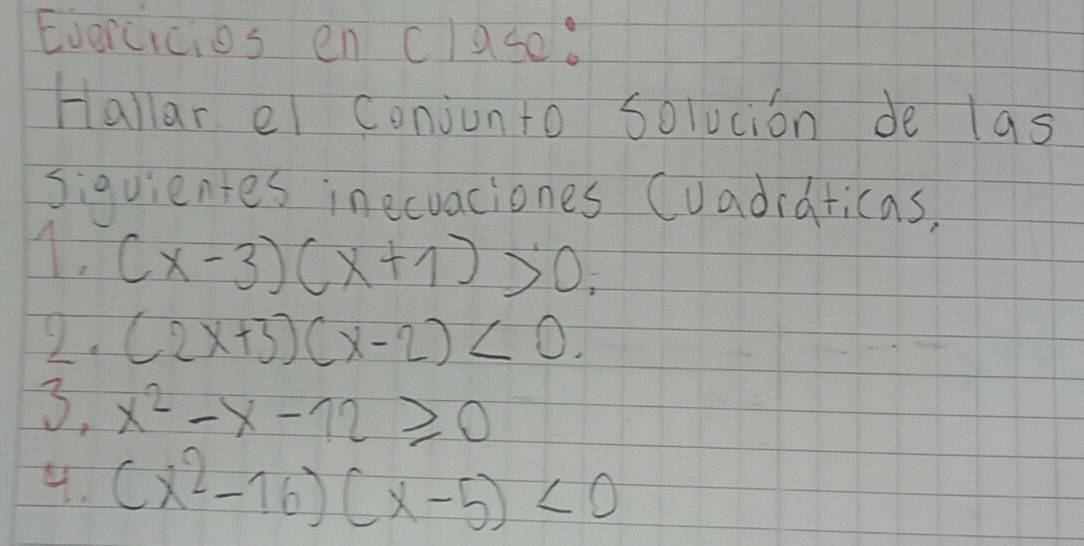 Ejercicios en clase:
Hallar el conjunto solución de las
siguientes inecuaciones Cuadráticas.
1. (x-3)(x+1) > 0.
2. (2x+3)(x-2) < 0.
3. x² - x - 12 ≥ 0
4. (x² - 16)(x - 5) < 0